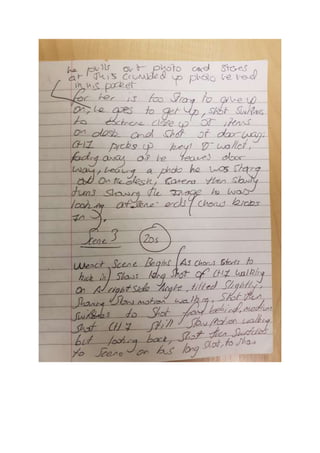 he pulls out photo and stares
at this crumbled up photo he had
in his pocket
for her is too strong to give up
on, he goes to get up, shot switches
to extreme close up of items
on desk and shot of door way.
CH1 picks up keys & wallet,
fading away as he leaves door
way, leaving a photo he was staring
at on the desk, camera then slowly
turns showing the image he was
looking at scene ends (chorus kicks
in).
Scene 3 20s
Scene Begins (As chorus starts to
kick in) shows long shot of CH1 walking
on A eight side Angle, tilted slightly
showing slow motion walking, shot then
switches to shot from behind, medium
shot CH1 still slow motion walking
but looking back, shot then switches
to scene on bus long shot, to show